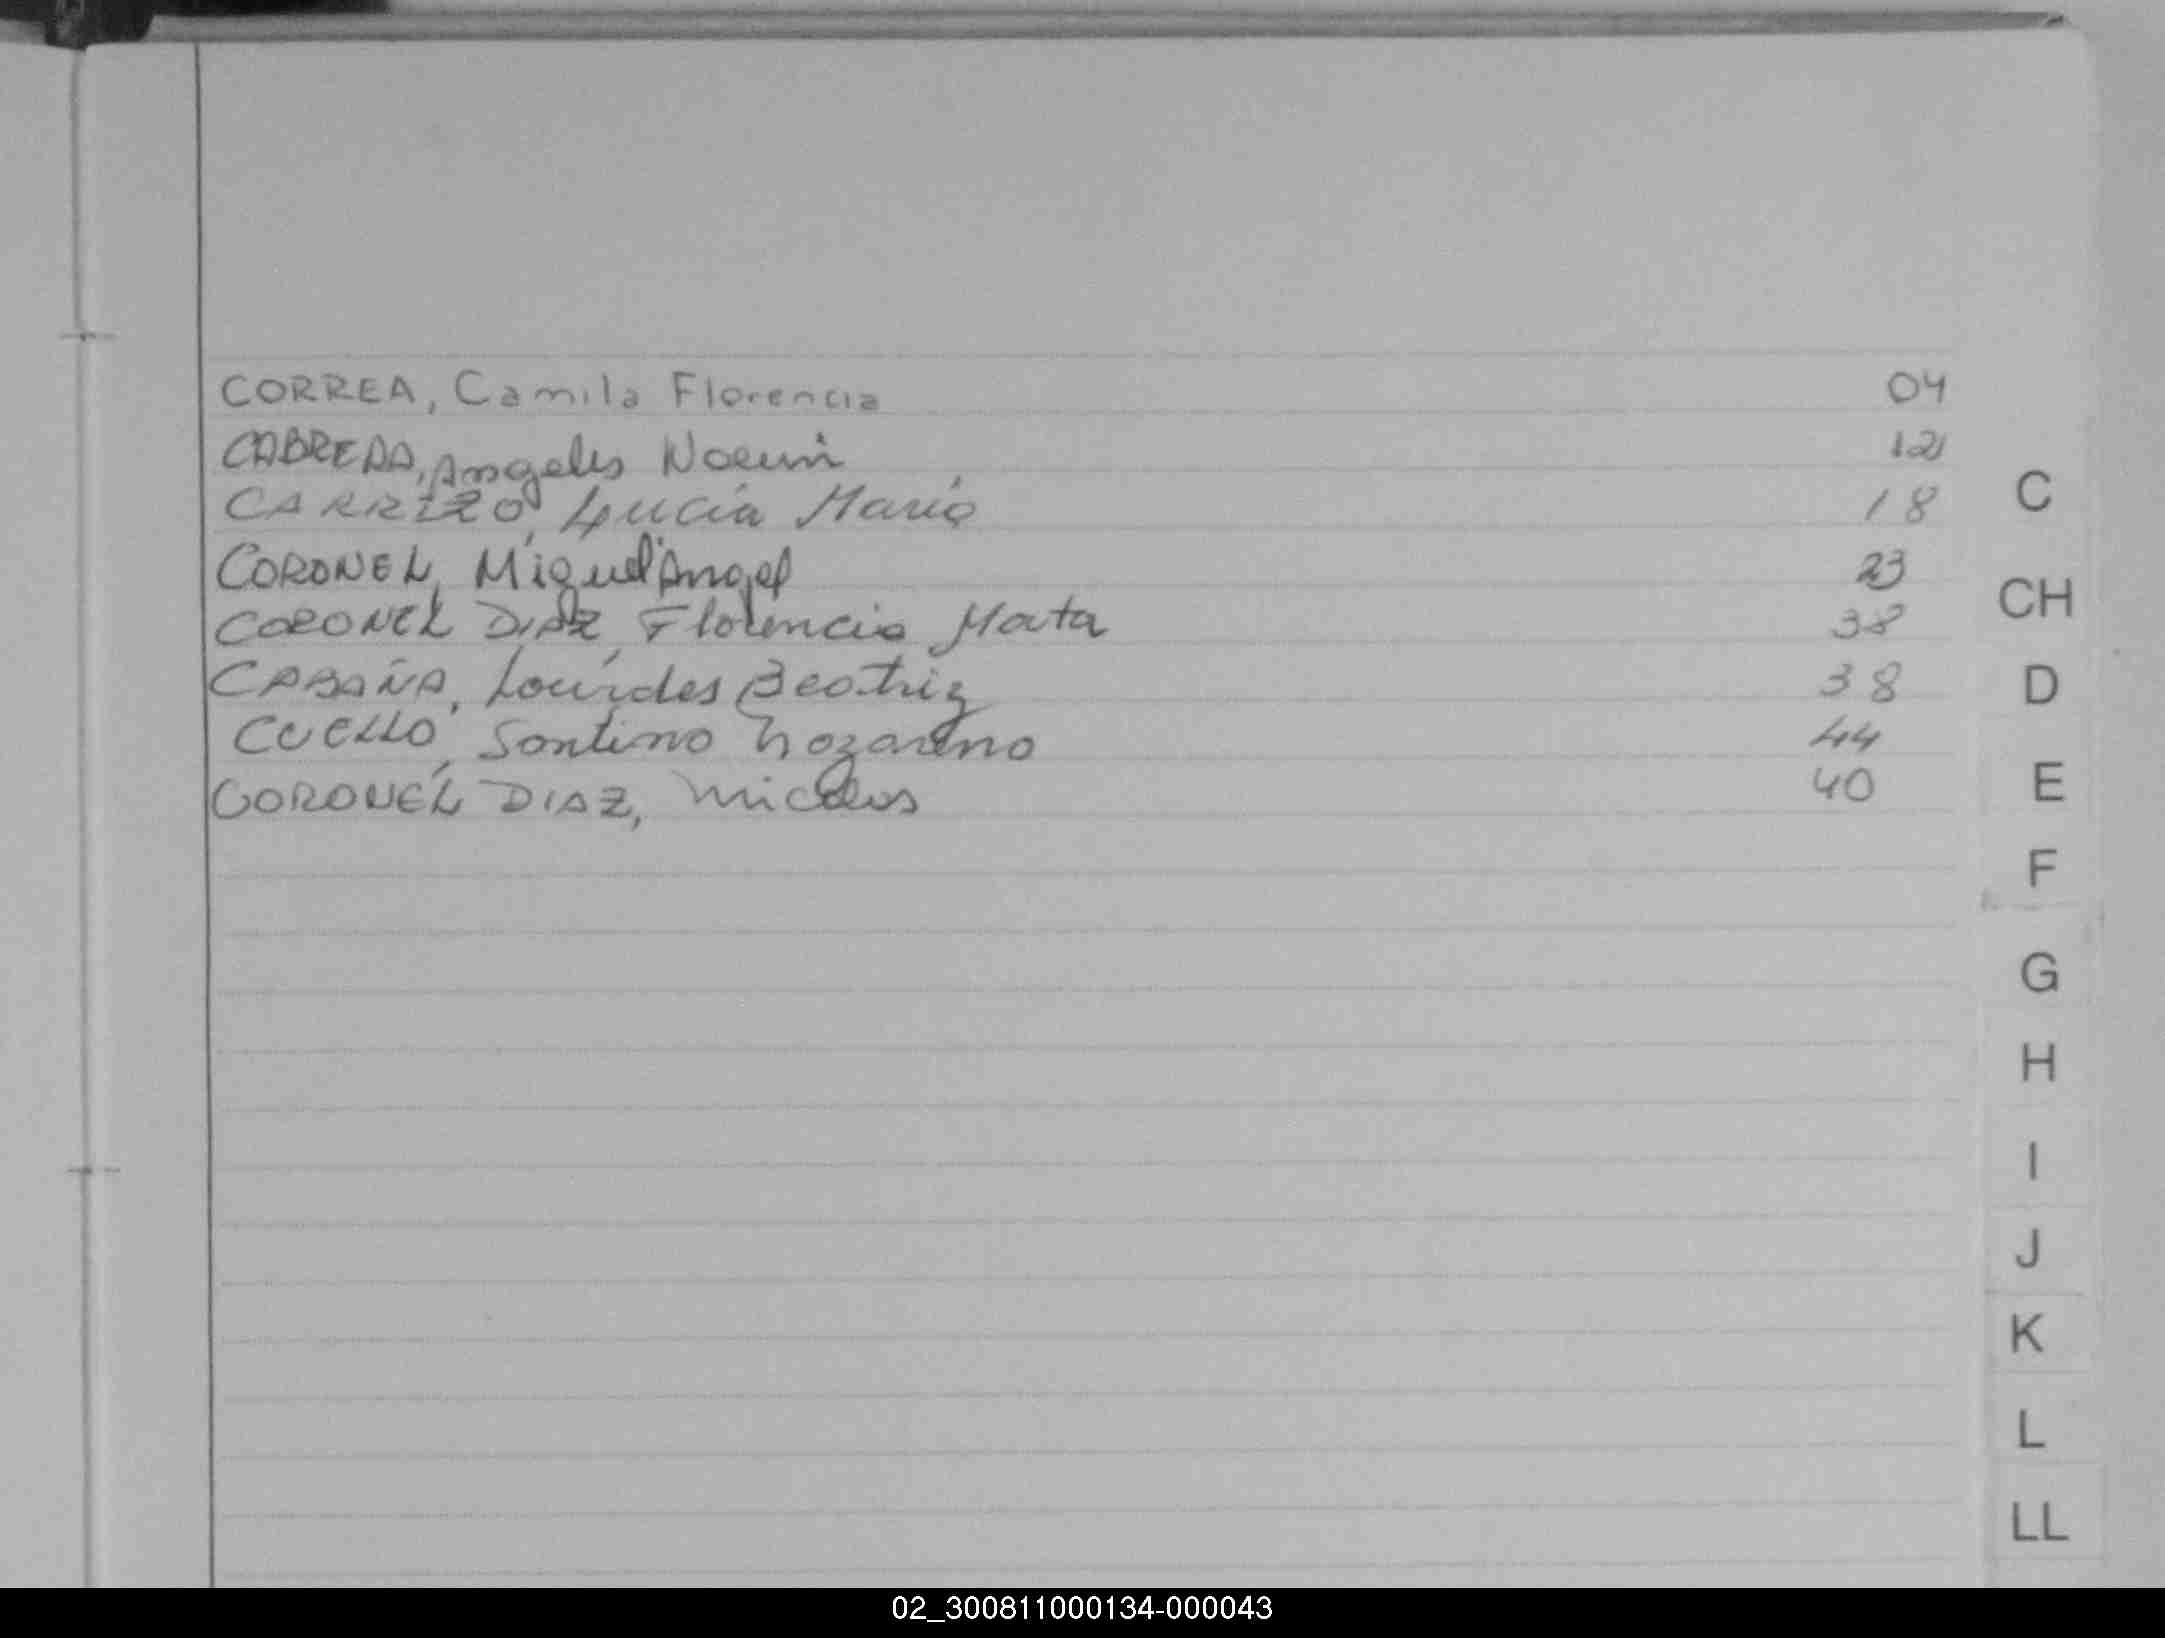 CORREA, Camila Florencia 04
CABRERA, Angeles Noemi 12
CARRIZO, Lucía María 18
CORONEL, Miguel Angel 23
CORONEL DIAZ, Florencia Marta 38
CABAÑA, Lourdes Beatriz 38
CUELLO, Santino Nazareno 44
CORONEL DIAZ, Nicolas 40
C
CH
D
E
F
G
H
I
J
K
L
LL
02_300811000134-000043